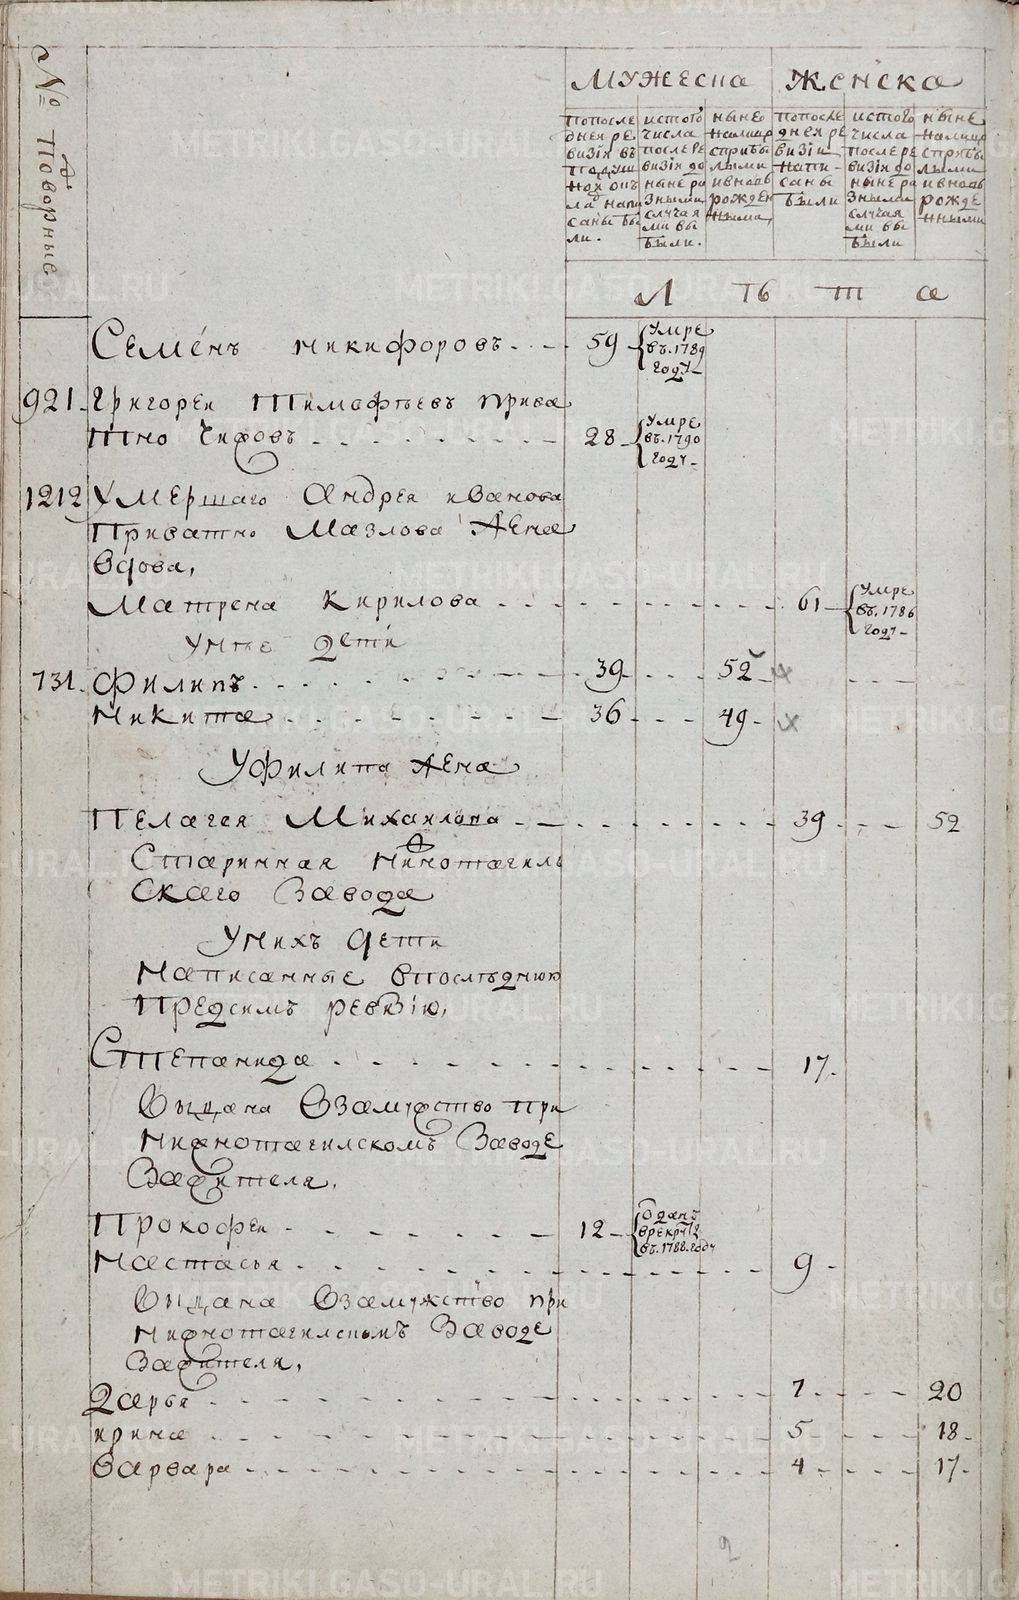 № подворные
мужеска женска
попослѣ
днея ре
визiи въ
подуш
ной опъ
ла напи
саны бы
ли.
истого
числа
после ре
визiи до
ныне ра
зными
случая
ми вы
были.
ныне
налицо
сприбы
лыми
ивновь
рожден
ными
попосле
днея ре
визiи
напи-
саны
были
истого
числа
после ре
визiи до
ныне ра
зными
случая
ми вы
были
ныне
налицо
сприбы
лыми
ивновь
рожде
нными
Л ѣ т а
Семенъ никифоровъ 59 Умре
въ 1789
году
921 Григореи Тимофѣевъ прива
тно 28 Умре
въ 1790
году
1212 Умершаго Андрея иванова
Приватно Мазлова жена
вдова,
Матрена Кирилова 61 Умре
въ 1786
году
унее дети
731 Филипъ 39 52
никита 36 49
Уфилипа жена
Пелагея Михаилова 39 52
Старинная нижнотагиль
скаго завода
Унихъ дети
написанные впослѣднюю
предсимъ ревизiю,
Степанида 17
Выдана взамужство при
нижнотагилскомъ заводе
зажителя,
Прокофеи 12 Отданъ
врекруты
въ 1788 году
настасья 9
Выдана взамужство при
нижнотагилскомъ заводе
зажителя,
Дарья 7 20
ирина 5 18
варвара 4 17
METRIKI.GASO-URAL.RU